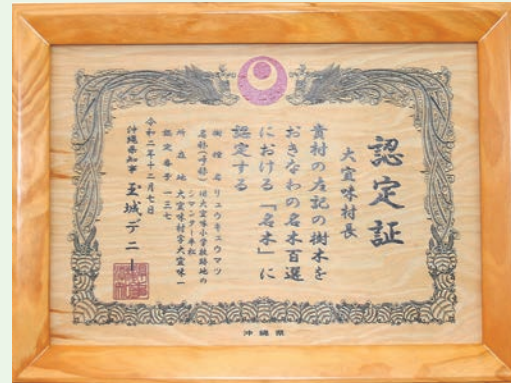 認定証
大宜味村長
貴村の左記の樹木を
おきなわの名木百選
における「名木」に
認定する
樹種名 リュウキュウマツ
名称(呼称) 旧大宜味小学校跡地の
シマンナー平松
所在地 大宜味村字大宜味一
認定番号 一三七
令和二年十二月七日
沖縄県知事 玉城デニー
沖縄県